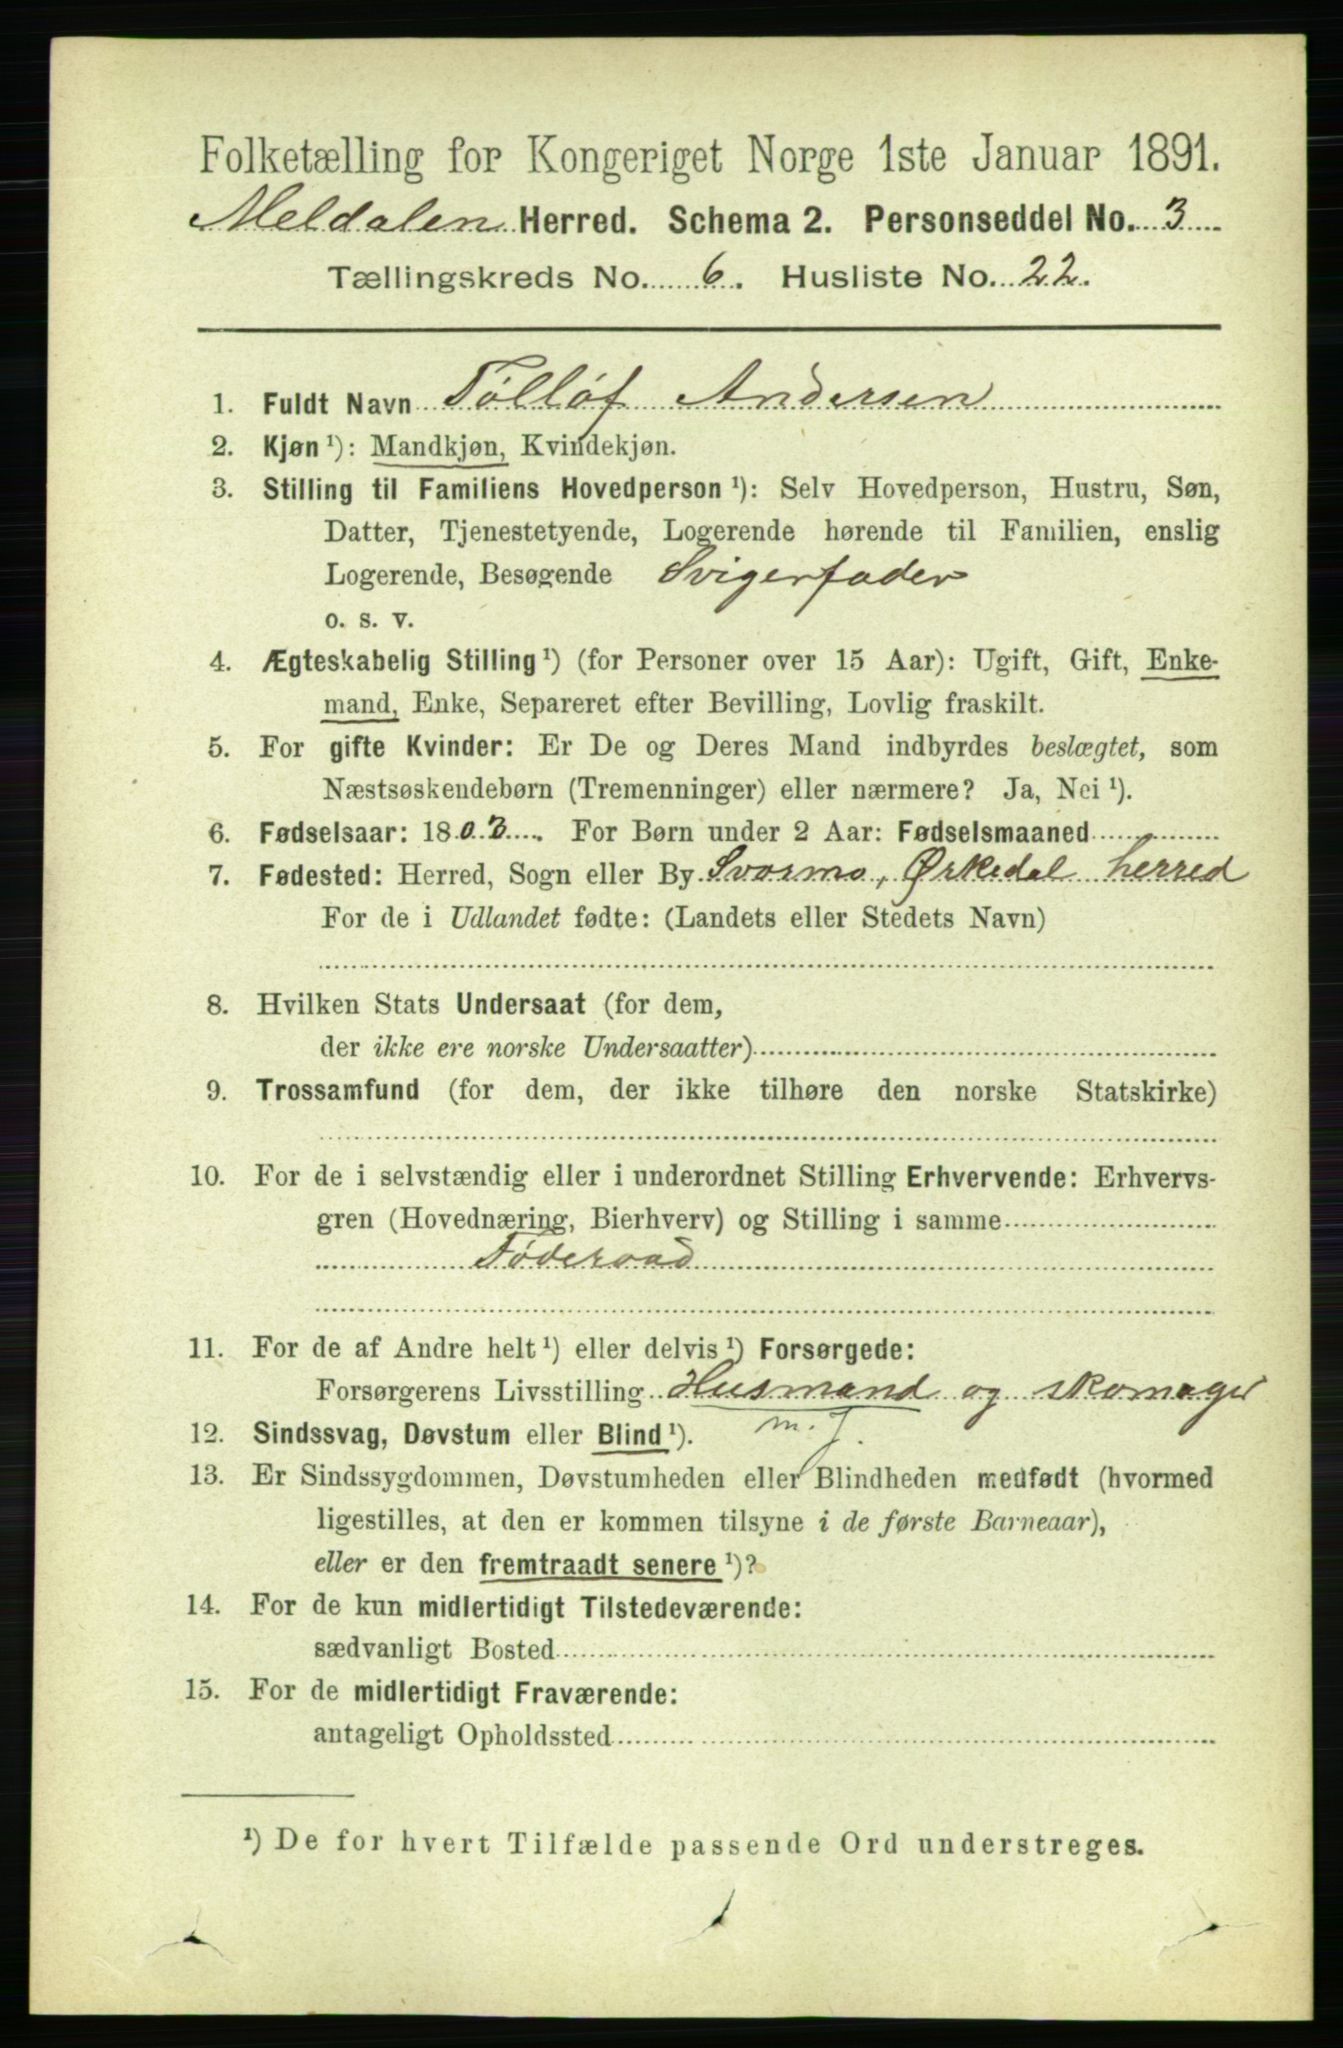 Folketælling for Kongeriget Norge 1ste Januar 1891.
Meldalen Herred. Schema 2. Personseddel No. 3
Tællingskreds No. 6. Husliste No. 22.
1. Fuldt Navn Tølløf Andersen
2. Kjøn ¹): Mandkjøn, Kvindekjøn.
3. Stilling til Familiens Hovedperson ¹): Selv Hovedperson, Hustru, Søn,
Datter, Tjenestetyende, Logerende hørende til Familien, enslig
Logerende, Besøgende Svigerfader
o. s. v.
4. Ægteskabelig Stilling ¹) (for Personer over 15 Aar): Ugift, Gift, Enke-
mand, Enke, Separeret efter Bevilling, Lovlig fraskilt.
5. For gifte Kvinder: Er De og Deres Mand indbyrdes beslægtet, som
Næstsøskendebørn (Tremenninger) eller nærmere? Ja, Nei ¹).
6. Fødselsaar: 1803. For Børn under 2 Aar: Fødselsmaaned
7. Fødested: Herred, Sogn eller By Svormo, Ørkedal herred
For de i Udlandet fødte: (Landets eller Stedets Navn)
8. Hvilken Stats Undersaat (for dem,
der ikke ere norske Undersaatter)
9. Trossamfund (for dem, der ikke tilhøre den norske Statskirke)
10. For de i selvstændig eller i underordnet Stilling Erhvervende: Erhvervs-
gren (Hovednæring, Bierhverv) og Stilling i samme
Føderaad
11. For de af Andre helt ¹) eller delvis ¹) Forsørgede:
Forsørgerens Livsstilling Husmand og skomager
m. J.
12. Sindssvag, Døvstum eller Blind ¹).
13. Er Sindssygdommen, Døvstumheden eller Blindheden medfødt (hvormed
ligestilles, at den er kommen tilsyne i de første Barneaar),
eller er den fremtraadt senere ¹)?
14. For de kun midlertidigt Tilstedeværende:
sædvanligt Bosted
15. For de midlertidigt Fraværende:
antageligt Opholdssted
¹) De for hvert Tilfælde passende Ord understreges.